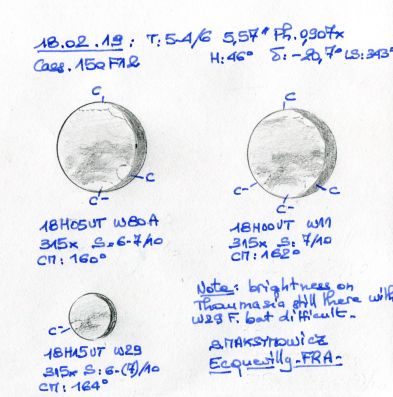 18.02.19: T:5-4/6 5,57" Ph.0,907x
Cass.150F12 H:46° δ:-20,7° LS:343°
C
C
C-
18H05UT W80A
315x S:6-7/10
CM:160°
C
C-
C
C-
18H00UT W11
315x S:7/10
CM:162°
C-
18H15UT W29
315x S:6-(7)/10
CM:164°
Note: brightness on
Thaumasia still there with
W29 F. but difficult-
S.MAKSYMOWICZ
Ecquevilly-FRA-